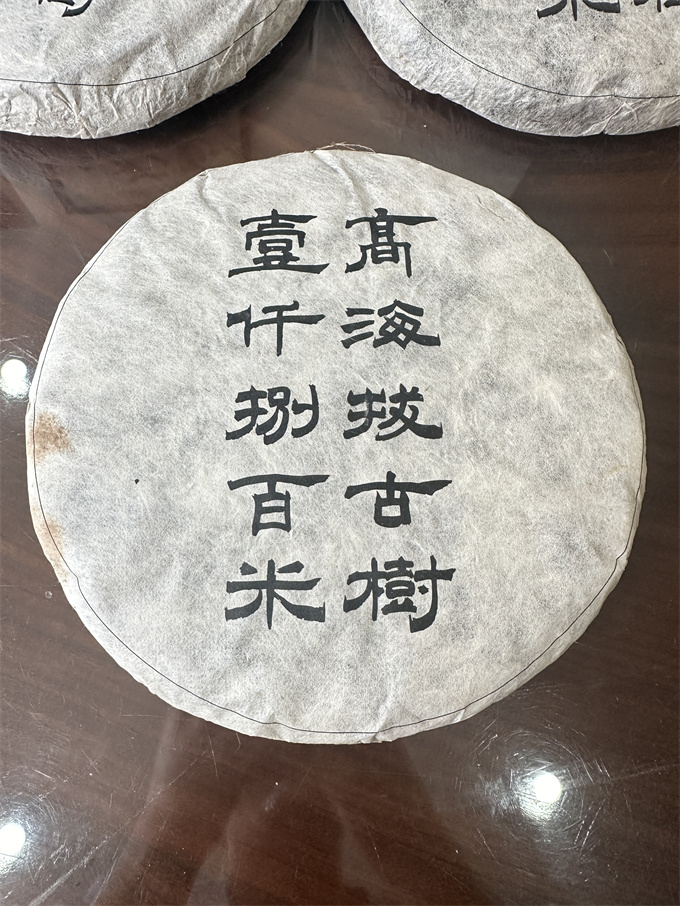 髙海拔古樹
壹仟捌百米